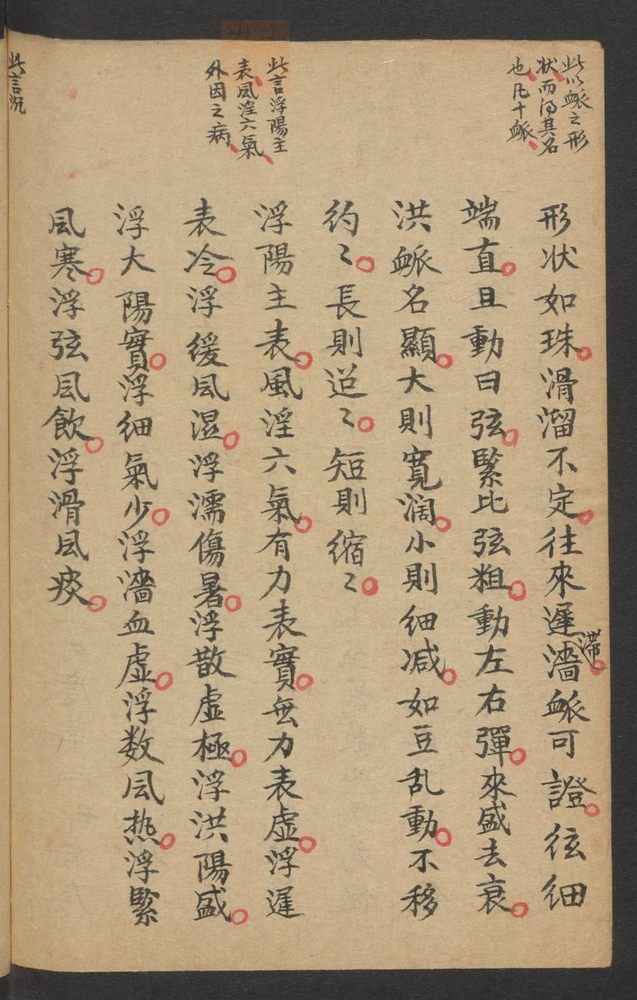 此以衇之形
状而得其名
也凡十衇
形状如珠滑溜不定往來遲濇滞衇可證弦細
端直且動曰弦緊比弦粗動左右彈來盛去衰
洪衇名顯大則寬濶小則細减如豆乱動不移
約〻長則迢〻短則縮〻
此言浮陽主
表風淫六氣
外因之病
浮陽主表風淫六氣有力表實無力表虛浮遲
表冷浮緩風濕浮濡傷暑浮散虛極浮洪陽盛
浮大陽實浮細氣少浮濇血虛浮数風热浮緊
風寒浮弦風飲浮滑風痰
此言沉